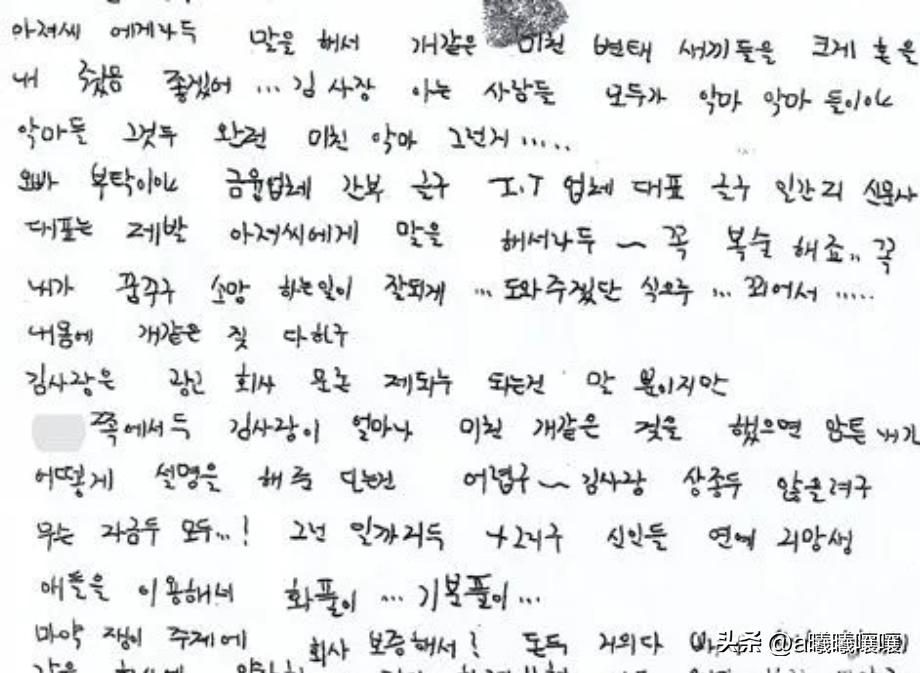 아저씨 에게라두 말을 해서 개같은 미친 변태 새끼들을 크게 혼을
내 줬음 좋겠어 ... 김 사장 아는 사람들 모두가 악마 악마 들이야
악마들 그것두 완전 미친 악마 그런지 .....
오빠 부탁이야 금융업체 간부 글구 I.T 업체 대표 글구 일간지 신문사
대표는 제발 아저씨에게 말을 해서라두 ~ 꼭 복수 해죠.. 꼭
내가 꿈꾸구 소망 하는일이 잘되게 ... 도와주겠단 식으루 ... 꾀어서 .....
내몸에 개같은 짓 다하구
김사장은 광고 회사 모든 제의두 되는건 말 뿐이지만
쪽에서두 김사장이 얼마나 미친 개같은 짓을 했으면 암튼 내가
어떻게 설명을 해 준 다는건 어렵구 ~ 김사장 상종두 않을려구
무는 자금두 모두...! 그런 일까지두 그리구 신인들 연예 지망생
애들을 이용해서 화풀이 ... 기분풀이 ...
마약 쟁이 주제에 회사 보증해서! 돈두 거의다
头条 @al曦曦嚷嚷